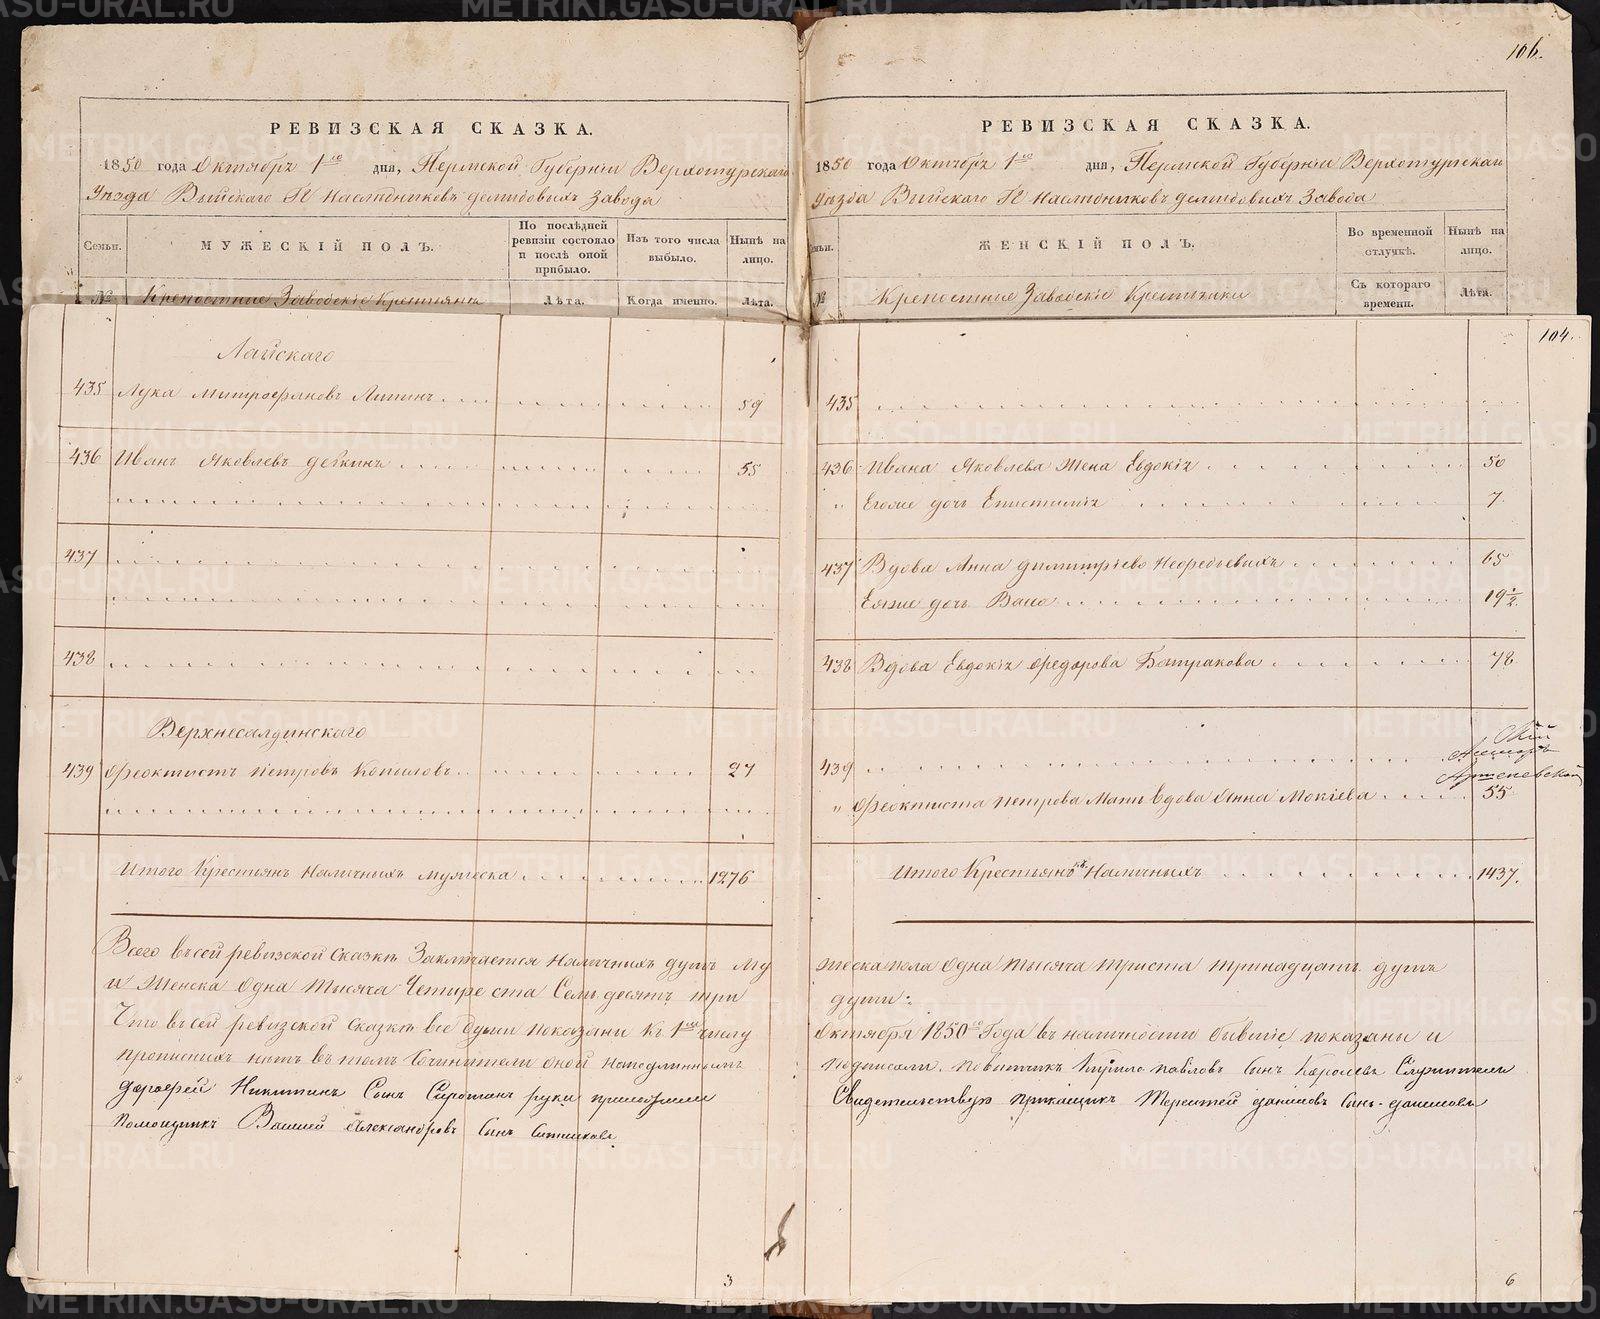 106.
РЕВИЗСКАЯ СКАЗКА.
1850 года Октября 1го дня, Пермской Губерніи Верхотурскаго
Уѣзда Выйскаго Гг Наслѣдниковъ Демидовыхъ Завода
Семьи.
МУЖЕСКІЙ ПОЛЪ.
По послѣдней ревизіи состояло и послѣ оной прибыло.
Изъ того числа выбыло.
Нынѣ на лицо.
№
Крѣпостные Заводскіе Крестьяне
Лѣта.
Когда именно.
Лѣта.
Лайскаго
435 Лука Митрофановъ Липинъ 59
436 Иванъ Яковлевъ 55
437
438
Верхнесалдинскаго
439 Феоктистъ Петровъ Копыловъ 27
Итого Крестьянъ Наличныхъ мужеска 1276
Всего въ сей ревизской сказкѣ Заключается Наличныхъ душъ Му
и Женска Одна Тысяча Четыре ста Семьдесятъ три
Что въ сей ревизской Сказкѣ все души показаны къ 1му числу
прописныхъ нѣтъ въ томъ Сочинители оной
Никитинъ Сынъ руки приложили
помощникъ Василей Александровъ Сынъ
3
РЕВИЗСКАЯ СКАЗКА.
1850 года Октября 1го дня, Пермской Губерніи Верхотурскаго
Уѣзда Выйскаго Гг Наслѣдниковъ Демидовыхъ Завода
Семьи.
ЖЕНСКІЙ ПОЛЪ.
Во временной отлучкѣ.
Нынѣ на лицо.
№
Крѣпостные Заводскіе Крестьянки
Съ котораго времени.
Лѣта.
104.
435
436 Ивана Яковлева Жена Евдокія 50
" Егоже дочь Епистимія 7
437 Вдова Анна Димитріева 65
Еяже дочь Васса 19½
438 Вдова Евдокія Федорова Батракова 78
439
" Феоктиста Петрова Мать вдова Анна Мокіева 55
Итого Крестьянокъ Наличныхъ 1437.
жеска пола Одна тысяча триста тринадцать душъ
души:
Октября 1850го Года въ наличности бывшіе показаны и
подписали. повытчикъ Павловъ Сынъ Королевъ Служители
Свидетельствую прикащикъ Терентей Даниловъ Сынъ Даниловъ
6